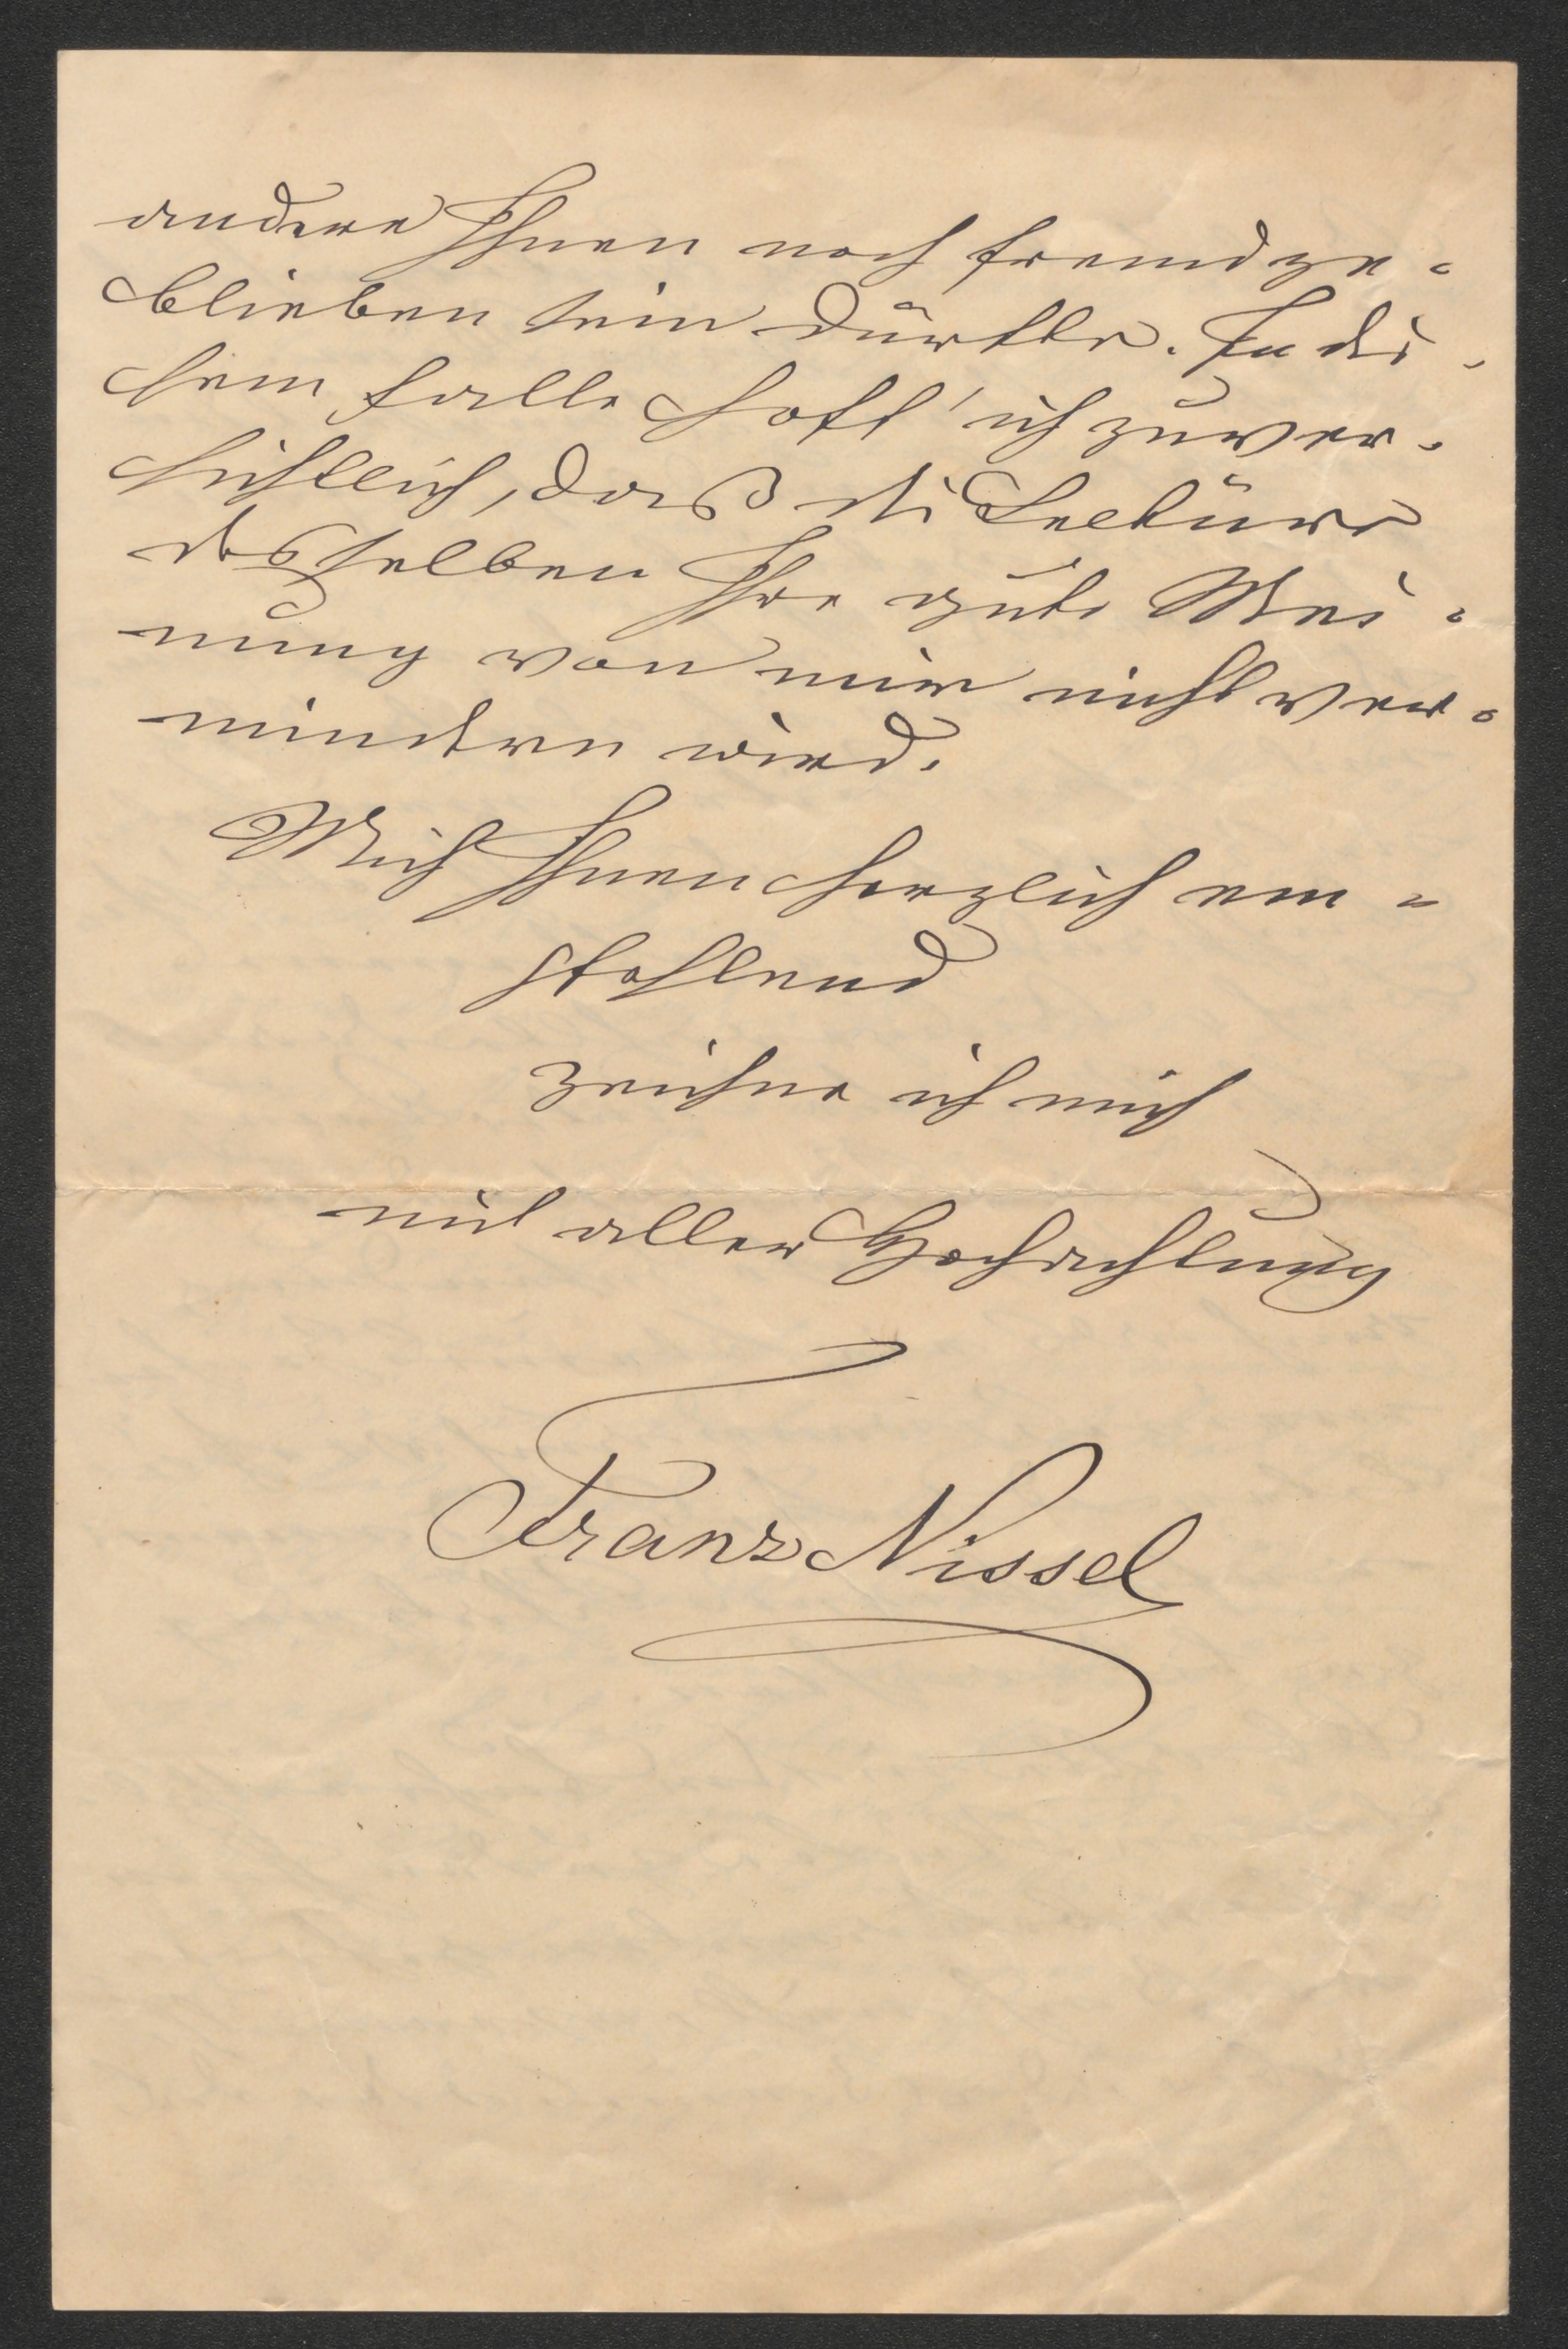 andere Ihnen noch fremd ge-
blieben sein dürfte. In die-
sem Falle hoff' ich zuver-
sichtlich, daß die Lectüre
desselben Ihre gute Mei-
nung von mir nicht ver-
mindern wird.
Mich Ihnen herzlich em-
pfehlend
zeichne ich mich
mit aller Hochachtung
Franz Nissel